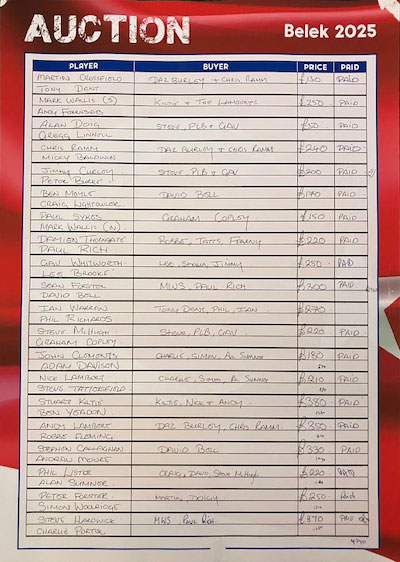 AUCTION
Belek 2025
PLAYER BUYER PRICE PAID
MARTIN CROSFIELD DAZ BURLEY + CHRIS RAMM £130 PAID
TONY DENT
MARK WALLIS (S) KILTIE + THE LAMBERTS £250 PAID
ANDY
ALAN DOIG STEVE, PLB + GAV £50 PAID
GREGG LINNELL
CHRIS RAMM DAZ BURLEY + CHRIS RAMM £240 PAID
MICKY BALDWIN
JIMMY CURLEY STEVE, PLB + GAV £200 PAID
PETER BURKE
BEN MOYLE DAVID BELL £170 PAID
CRAIG LIGHTOWLER
PAUL SYKES GRAHAM COPLEY £150 PAID
MARK WALLIS (N)
DAMIEN THORNGATE ROBBE, TATTS, £220 PAID
PAUL RICH
GAV WHITWORTH LEE, JIMMY £250 PAID
LEE BROOKE
SEAN FORSTER MWS, PAUL RICH £300 PAID
DAVID BELL
IAN WARROW TONY DENT, PHIL, IAN £270
PHIL RICHARDS
STEVE MCHUGH STEVE, PLB, GAV £220 PAID
GRAHAM COPLEY
JOHN CLEMENTS CHARLIE, SIMON, AL SUMNER £180 PAID
ADAM DAVISON
NICK LAMBERT CHARLIE, SIMON, AL SUMNER £210 PAID
STEVE TATTERSFIELD
STUART KILTIE KILTIE, NICK + ANDY £380 PAID
BEN YEADON
ANDY LAMBERT DAZ BURLEY, CHRIS RAMM £350 PAID
ROBBE FLEMING
STEPHEN CALLAGHAN DAVID BELL £330 PAID
ANDREW MOORE
PHIL LISTER CRAIG, DAVID, STEVE MCHUGH £220 PAID
ALAN SUMNER
PETER FORSTER MARTIN, £250 PAID
SIMON WOOLRIDGE
STEVE HARDWICK MWS, PAUL RICH £370 PAID
CHARLIE PORTER